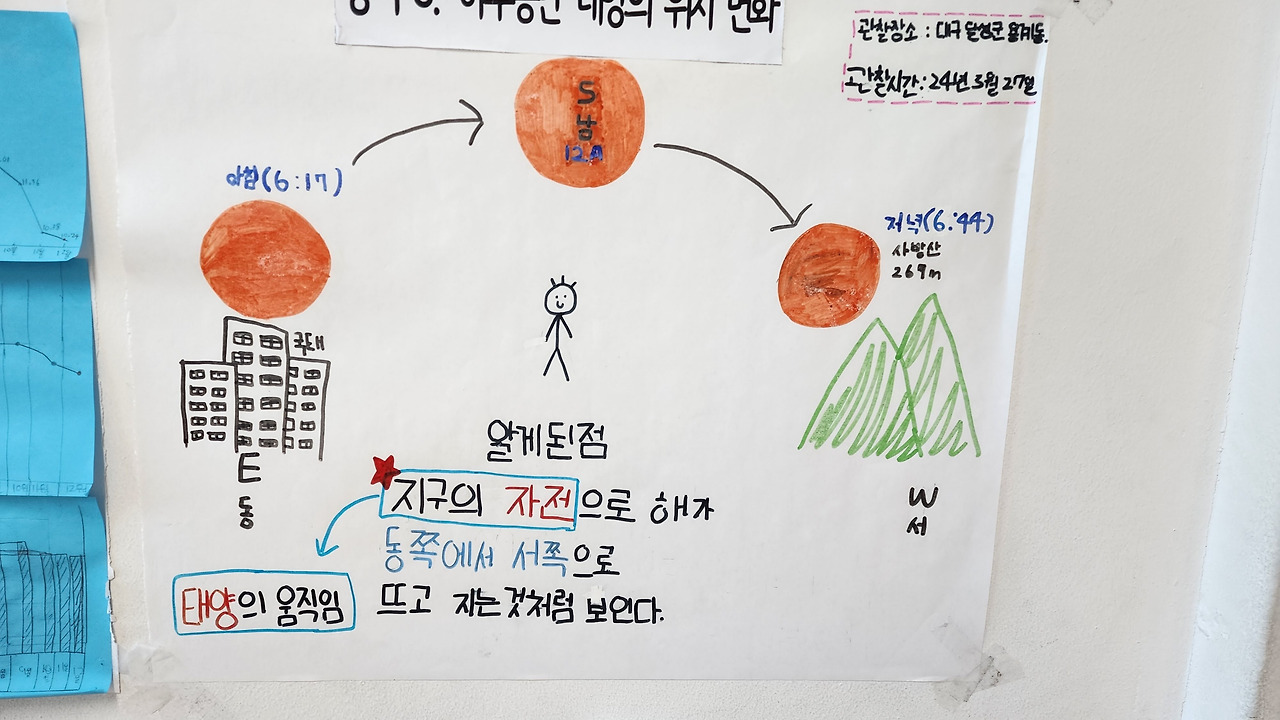 하루동안 태양의 위치 변화
관찰장소 : 대구 달성군 용계동.
관찰시간 : 24년 3월 27일
S
남
12시
아침(6:17)
저녁(6:44)
사방산
269m
E
동
W
서
알게된점
지구의 자전으로 해가
동쪽에서 서쪽으로
뜨고 지는것처럼 보인다.
태양의 움직임